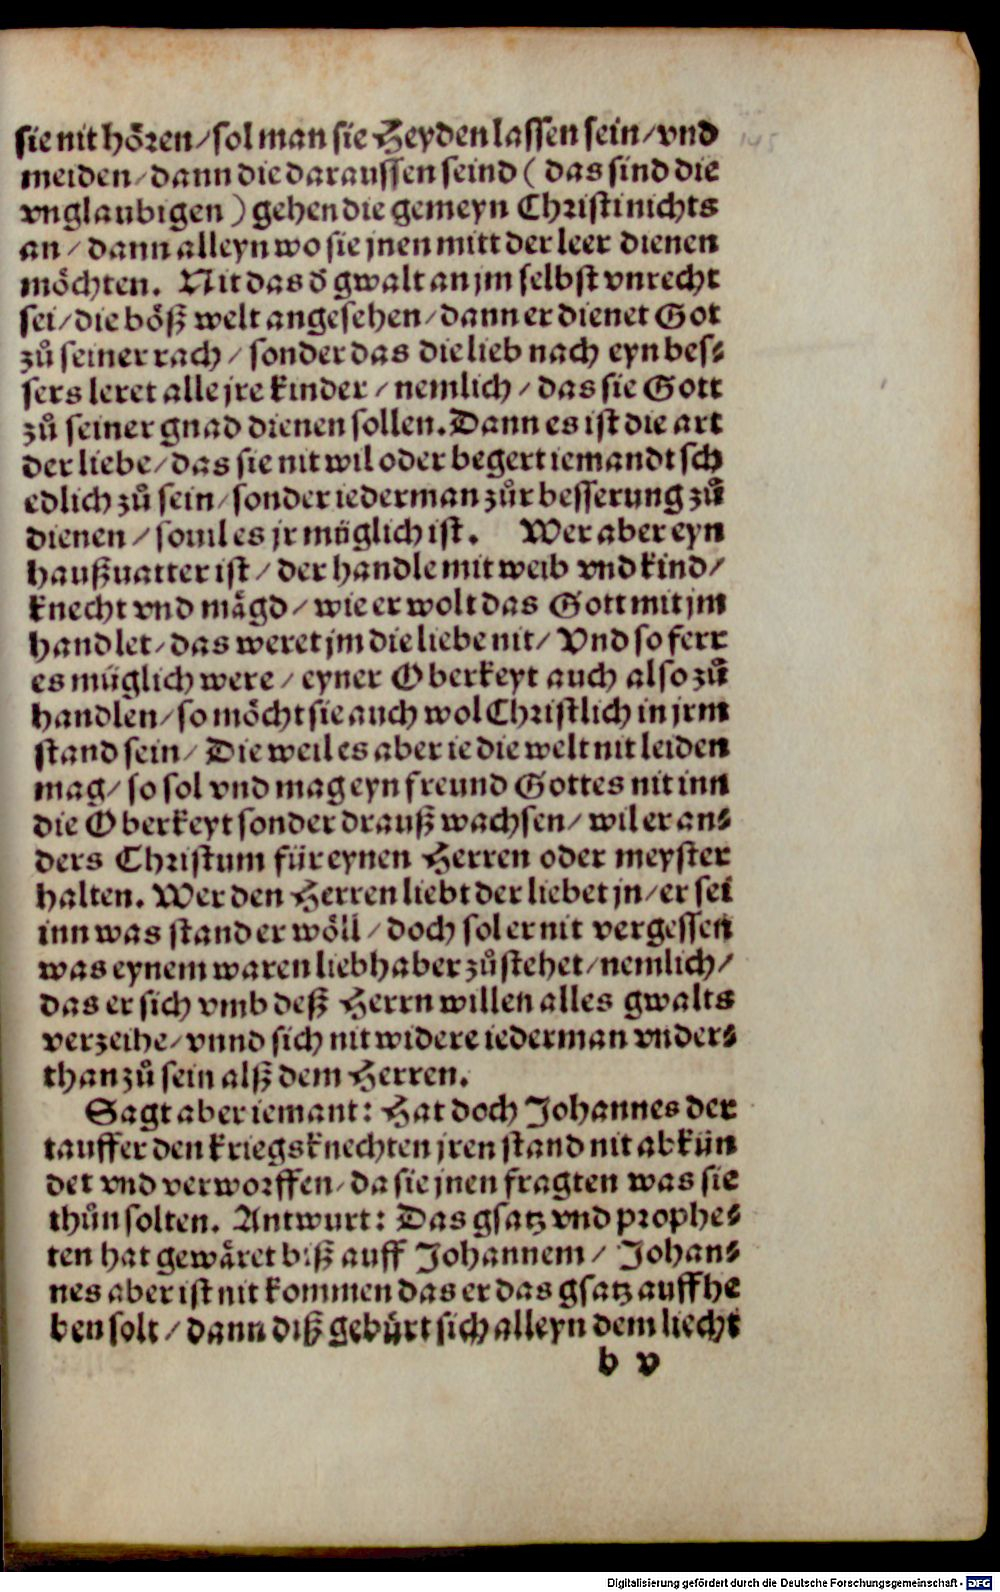 sie nit hören/sol man sie Heyden lassen sein/vnd
meiden/dann die daraussen seind ( das sind die
vnglaubigen ) gehen die gemeyn Christi nichts
an/dann alleyn wo sie jnen mitt der leer dienen
möchten. Nit das d̕ gwalt an jm selbst vnrecht
sei/die böß welt angesehen/dann er dienet Got
zů seiner rach/sonder das die lieb nach eyn bes⸗
sers leret alle jre kinder/nemlich/das sie Gott
zů seiner gnad dienen sollen.Dann es ist die art
der liebe/das sie nit wil oder begert iemandt sch
edlich zů sein/sonder iederman zůr besserung zů
dienen/souil es jr müglich ist. Wer aber eyn
haußuatter ist/der handle mit weib vnd kind/
knecht vnd mägd/wie er wolt das Gott mit jm
handlet/das weret jm die liebe nit/Vnd so ferr
es müglich were/eyner Oberkeyt auch also zů
handlen/so möcht sie auch wol Christlich in jrm
stand sein/Die weil es aber ie die welt nit leiden
mag/so sol vnd mag eyn freund Gottes nit inn
die Oberkeyt sonder drauß wachsen/wil er an⸗
ders Christum für eynen Herren oder meyster
halten. Wer den Herren liebt der liebet jn/er sei
inn was stand er wöll/doch sol er nit vergessen
was eynem waren liebhaber zůstehet/nemlich/
das er sich vmb deß Herrn willen alles gwalts
verzeihe/vnnd sich nit widere iederman vnder⸗
than zů sein alß dem Herren.
Sagt aber iemant: Hat doch Johannes der
tauffer den kriegsknechten jren stand nit abkün
det vnd verworffen/da sie jnen fragten was sie
thůn solten. Antwurt: Das gsatz vnd prophe⸗
ten hat gewäret biß auff Johannem/ Johan⸗
nes aber ist nit kommen das er das gsatz auffhe
ben solt/dann diß gebürt sich alleyn dem liecht
b v
Digitalisierung gefördert durch die Deutsche Forschungsgemeinschaft - DFG